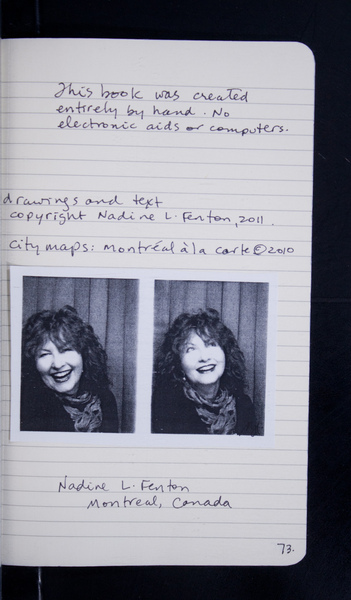 This book was created
entirely by hand. No
electronic aids or computers.
drawings and text
copyright Nadine L. Fenton, 2011.
city maps: montréal à la carte © 2010
Nadine L. Fenton
Montreal, Canada
73.